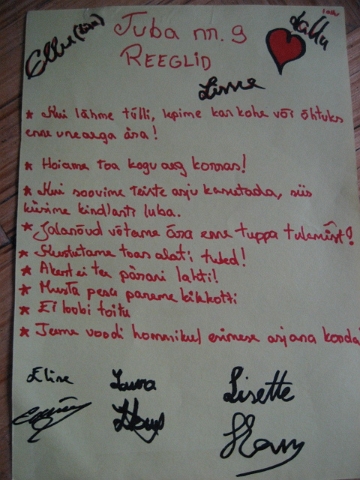 Tuba nr. 9
REEGLID
* Kui lähme tülli, lepime kas kohe või õhtuks
enne uneaega ära!
* Hoiame toa kogu aeg korras!
* Kui soovime teiste asju kasutada, siis
küsime kindlasti luba.
* Jalanõud võtame ära enne tuppa tulemist!
* Kustutame toas alati tuled!
* Aknast ei tee pärani lahti!
* Musta pesu paneme kilekotti
* Ei loobi toitu
* Teeme voodi hommikul esimese asjana korda
Eline Laura Lisette